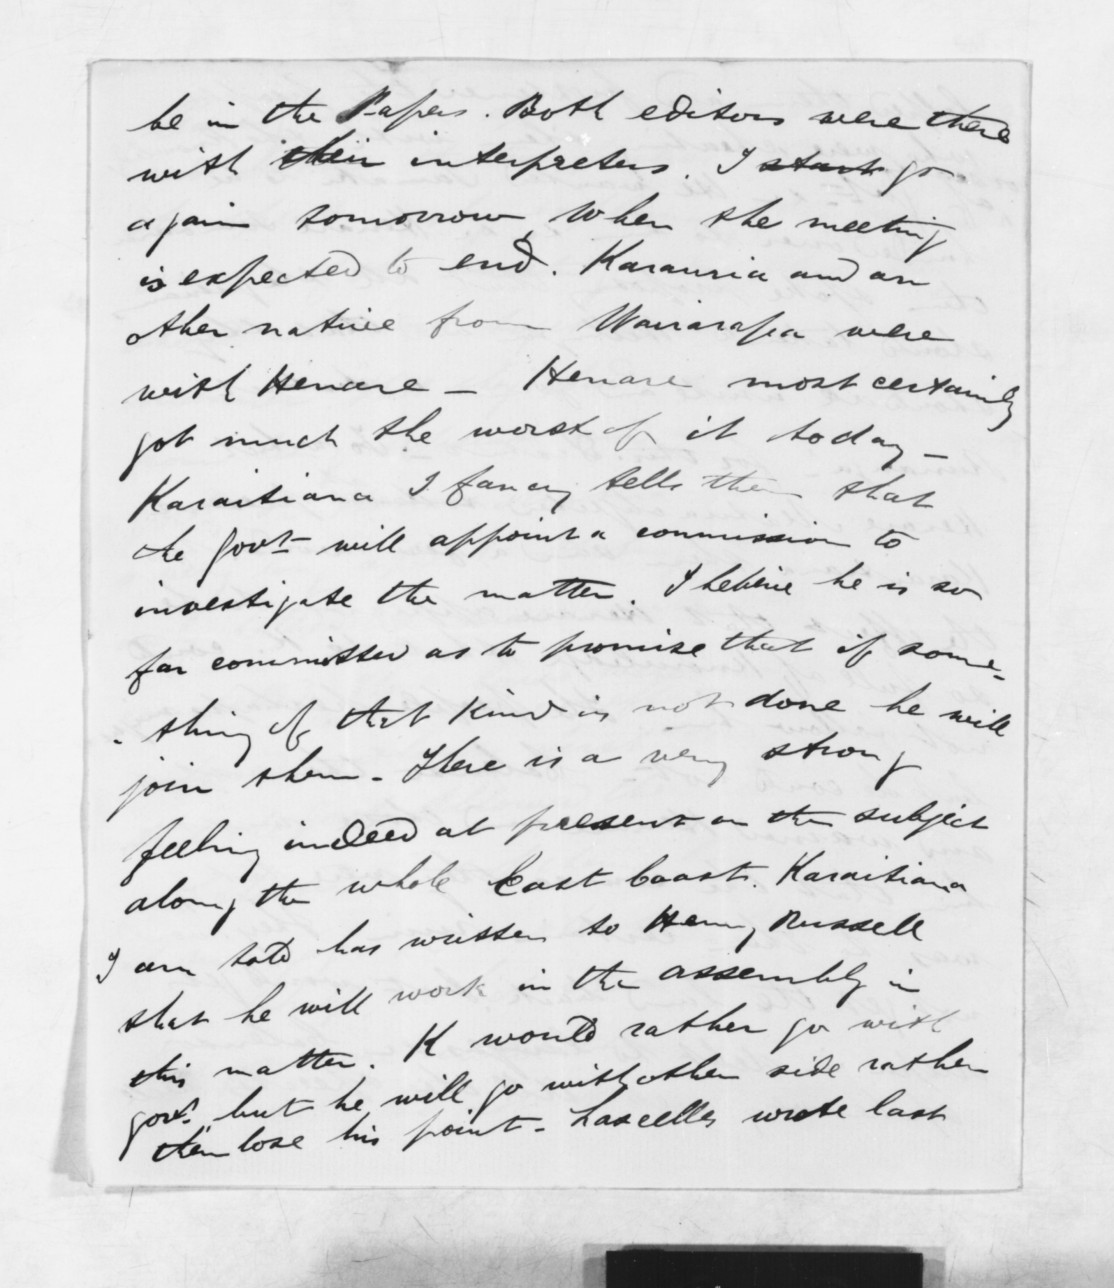 be in the Papers. Both editors were there
with their interpreters. I start go
again tomorrow when the meeting
is expected to end. Karauria and an
other native from Wairarapa were
with Henare – Henare most certainly
got much the worst of it today –
Karaitiana I fancy tells them that
the Govt will appoint a commission to
investigate the matter. I believe he is so
far committed as to promise that if some-
-thing of that kind is not done he will
join them – There is a very strong
feeling indeed at present on the subject
along the whole East Coast. Karaitiana
I am told has written to Henry Russell
that he will work in the assembly in
this matter. K would rather go with
govt. but he will go with other side rather
than lose his point – Lascelles wrote last